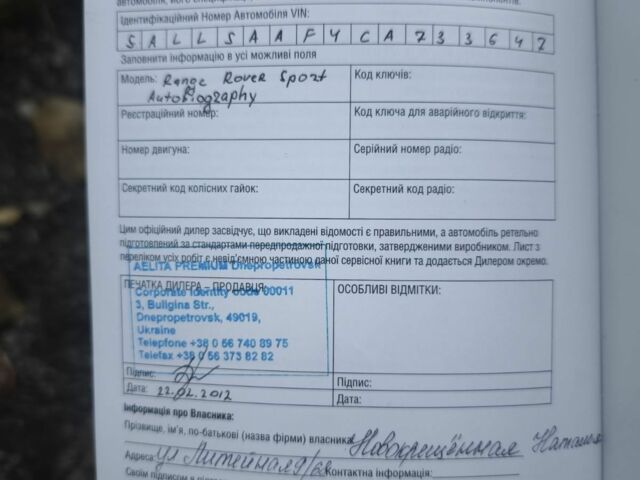 Ідентифікаційний Номер Автомобіля VIN:
SALLSAAF4CA733647
Заповнити інформацію в усі можливі поля
Модель: Range Rover Sport
Autobiography
Код ключів:
Реєстраційний номер:
Код ключа для аварійного відкриття:
Номер двигуна:
Серійний номер радіо:
Секретний код колісних гайок:
Секретний код радіо:
Цим офіційний дилер засвідчує, що викладені відомості є правильними, а автомобіль ретельно
підготовлений за стандартами передпродажної підготовки, затвердженими виробником. Лист з
переліком усіх робіт є невід'ємною частиною даної сервісної книги та додається Дилером окремо.
AELITA PREMIUM Dnepropetrovsk
ПЕЧАТКА ДИЛЕРА – ПРОДАВЦЯ:
ОСОБЛИВІ ВІДМІТКИ:
Corporate Identity code 00011
3, Buligina Str.,
Dnepropetrovsk, 49019,
Ukraine
Telepfone +38 0 56 740 89 75
Telefax +38 0 56 373 82 82
Підпис:
Підпис:
Дата: 22.02.2012
Дата:
Інформація про Власника:
Прізвище, ім'я, по-батькові (назва фірми) власника: Новокрещённая Наталья
Адреса: ул Литейная 9/
Контактна інформація: